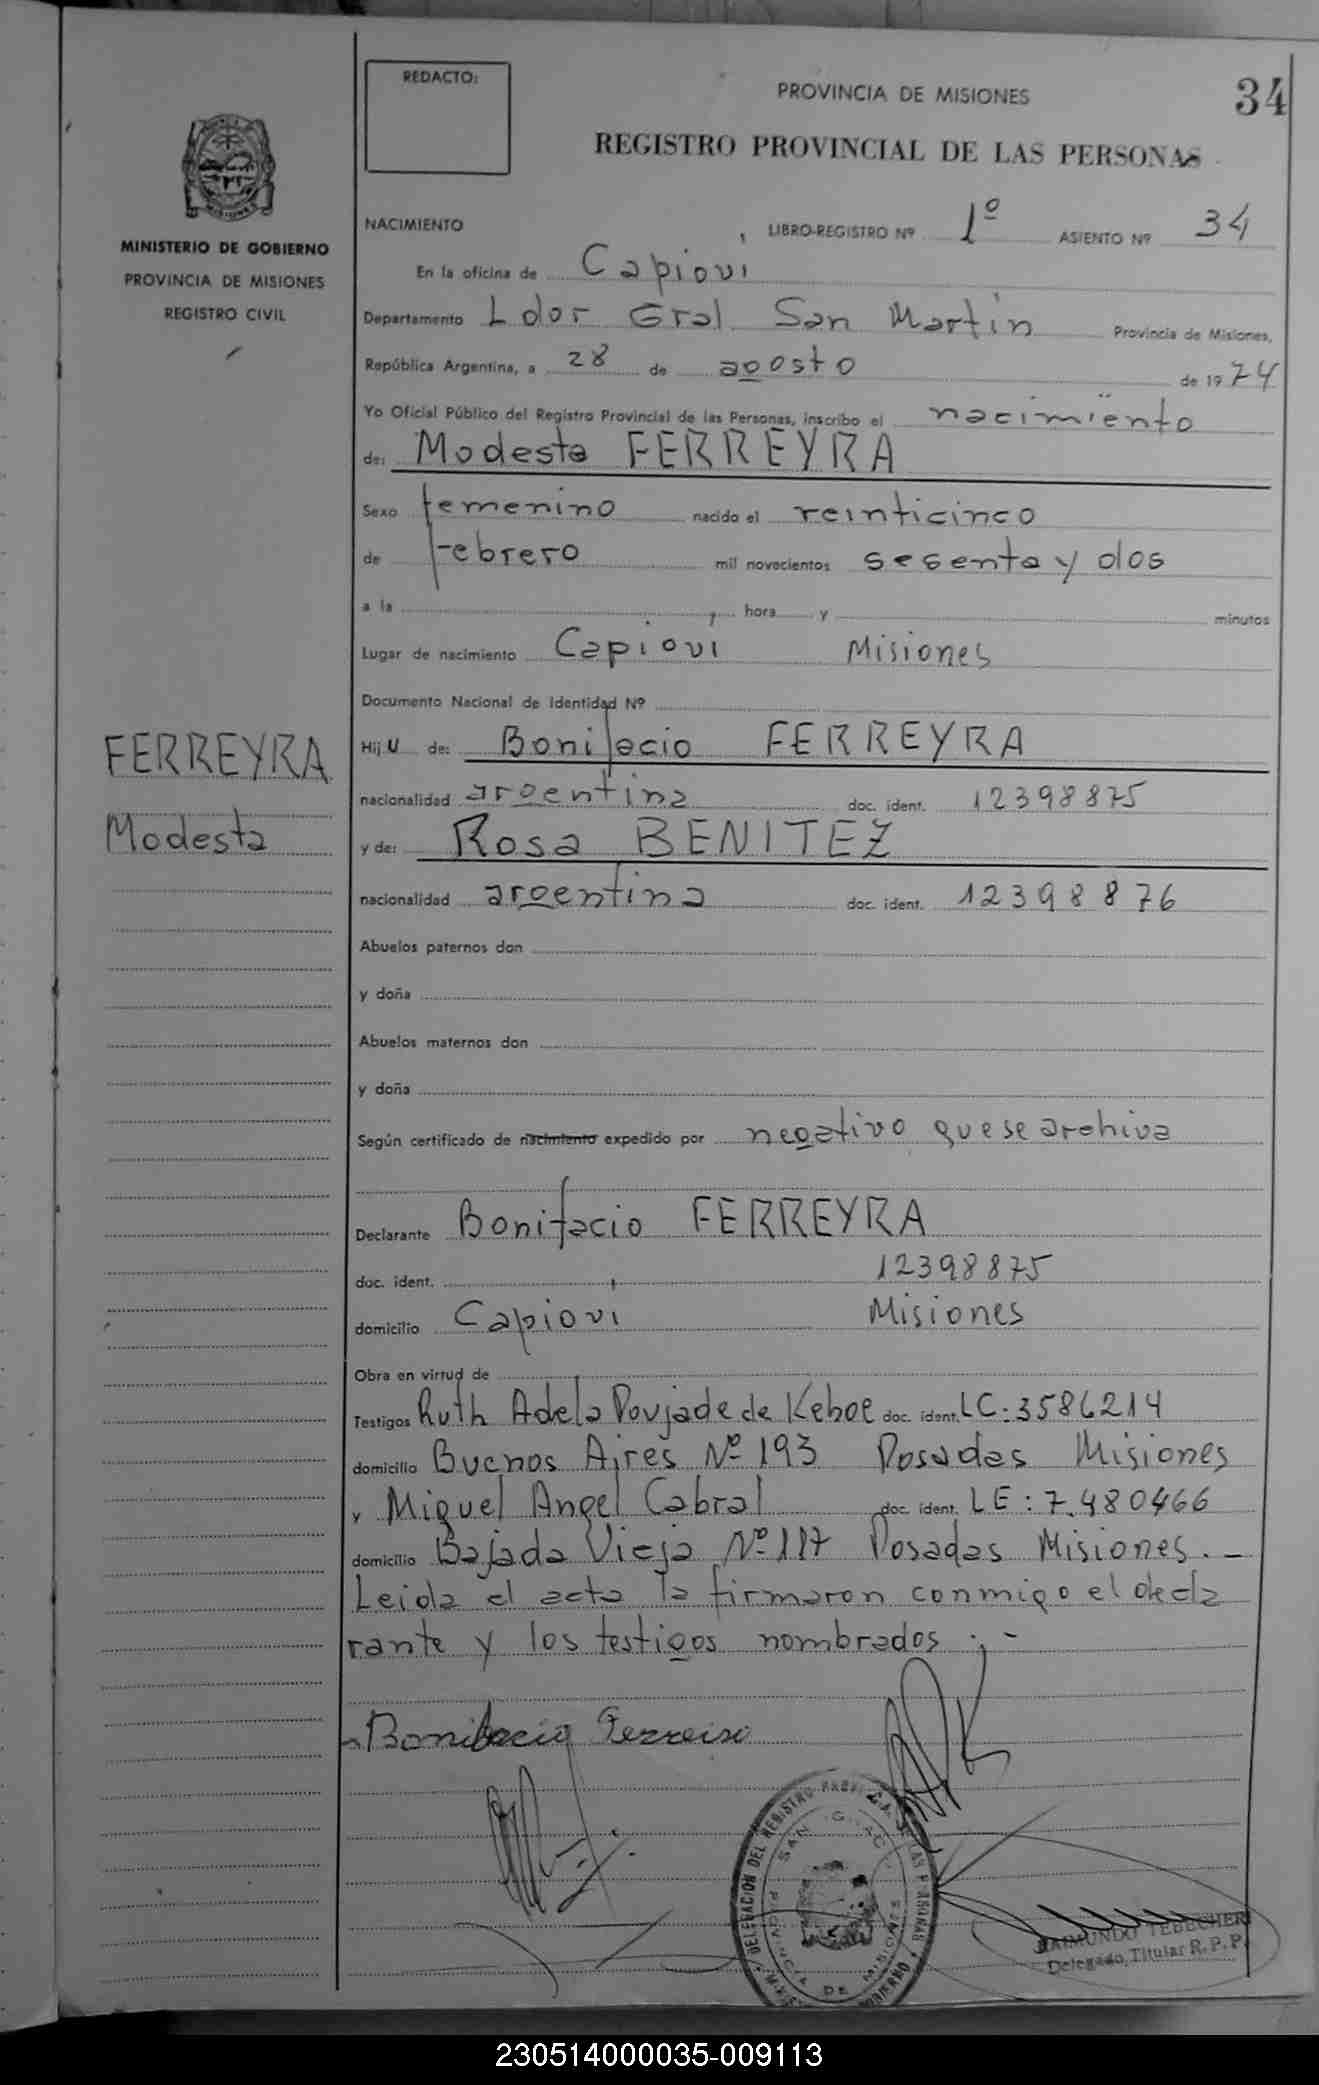 REDACTO:
PROVINCIA DE MISIONES
34
REGISTRO PROVINCIAL DE LAS PERSONAS
MISIONES
MINISTERIO DE GOBIERNO
PROVINCIA DE MISIONES
REGISTRO CIVIL
NACIMIENTO LIBRO-REGISTRO Nº 1º ASIENTO Nº 34
En la oficina de Capiovi
Departamento Ldor Gral San Martin Provincia de Misiones,
República Argentina, a 28 de agosto de 1974
Yo Oficial Público del Registro Provincial de las Personas, inscribo el nacimiento
de: Modesta FERREYRA
Sexo femenino nacido el veinticinco
de febrero mil novecientos sesenta y dos
a la hora y minutos
Lugar de nacimiento Capiovi Misiones
Documento Nacional de Identidad Nº
FERREYRA
Modesta
Hij U de: Bonifacio FERREYRA
nacionalidad argentina doc. ident. 12398875
y de: Rosa BENITEZ
nacionalidad argentina doc. ident. 12398876
Abuelos paternos don
y doña
Abuelos maternos don
y doña
Según certificado de nacimiento expedido por negativo que se archiva
Declarante Bonifacio FERREYRA
doc. ident. 12398875
domicilio Capiovi Misiones
Obra en virtud de
Testigos Ruth Adela Poujade de Kehoe doc. ident. LC: 3586214
domicilio Buenos Aires Nº 193 Posadas Misiones
y Miguel Angel Cabral doc. ident. LE: 7.480466
domicilio Bajada Vieja Nº 117 Posadas Misiones.-
Leida el acta la firmaron conmigo el decla
rante y los testigos nombrados.-
Bonifacio Ferreira
DELEGACION DEL REGISTRO
PROVINCIA DE MISIONES
RAIMUNDO TEBECHERI
Delegado Titular R.P.P.
230514000035-009113